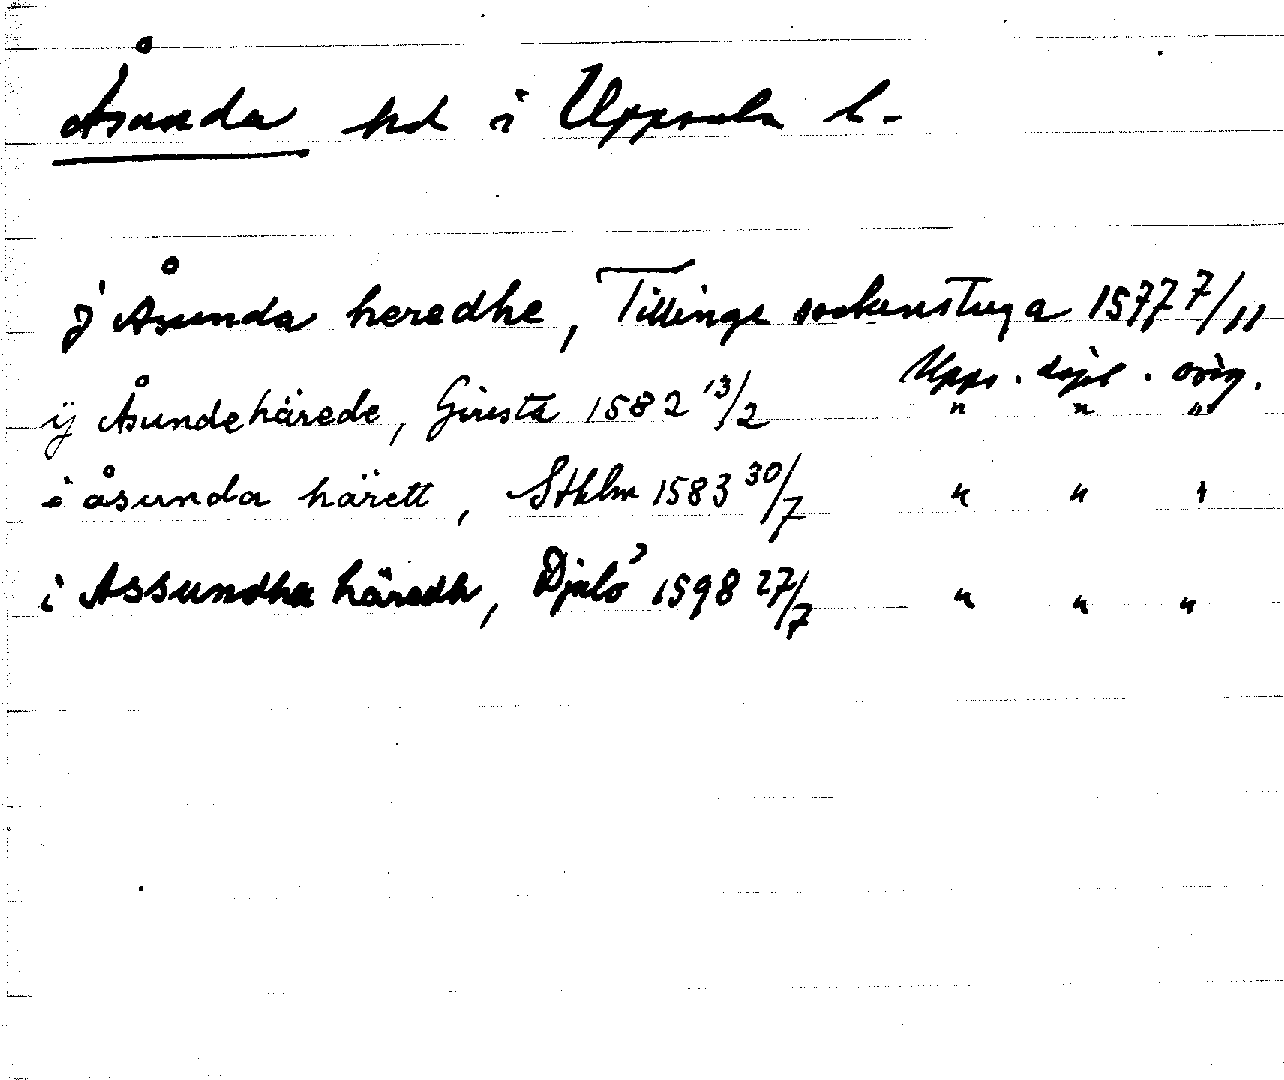 Åsunda hd i Uppsala l.
j Åsunda heredhe, Tillinge sockenstuga 1577 7/11
Upps. dipl. orig.
ij Åsundehärede, Giresta 1582 13/2 " " "
i åsunda härett, Sthlm 1583 30/7 " " "
i Assundha häredh, 1598 27/7 " " "